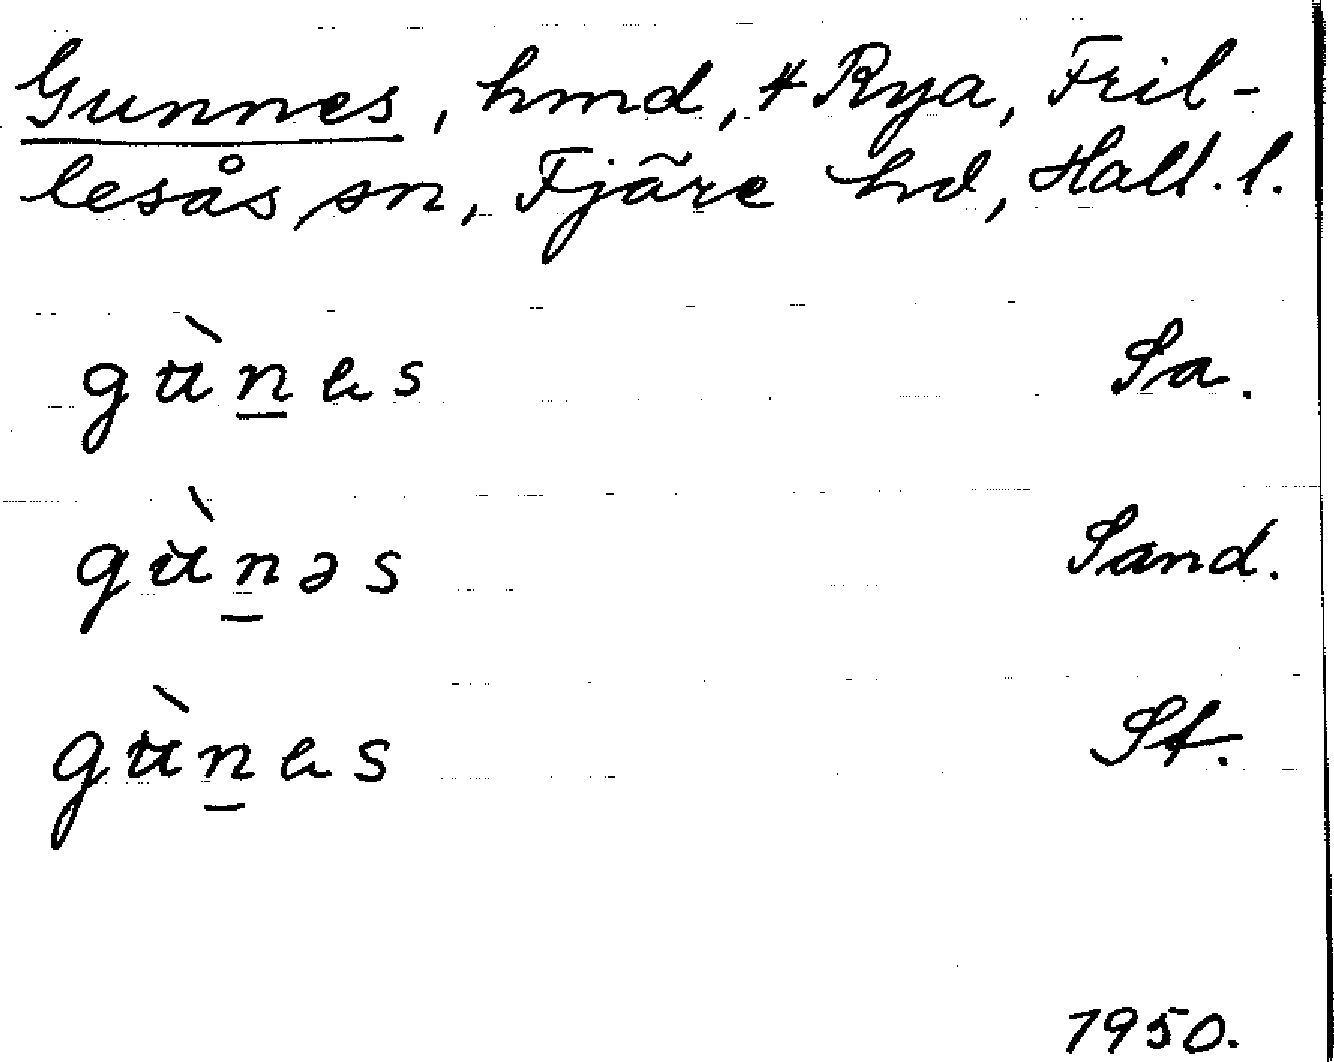 Gunnes, hmd, # Rya, Fril-
lesås sn, Fjäre hd, Hall. l.
gùn̲es Sa.
gùn̲əs Sand.
gùn̲es St.
1950.